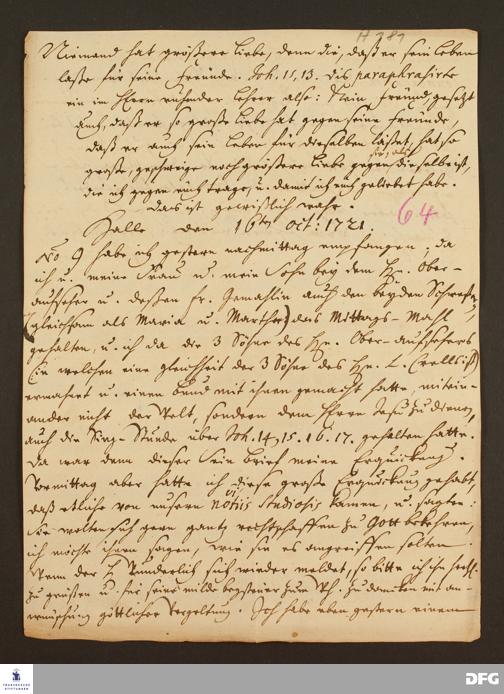 H 281
Niemand hat größere Liebe, denn die, daß er sein Leben
laße für seine Freunde. Joh. 15, 13. dis paraphrasirte
ein im Herrn ruhender Lehrer also: Kein Freund gesetzt
auch, daß er so große Liebe hat gegen seine Freunde,
daß er auch sein Leben für dieselben läßet, hat so
große, geschweige noch größere Liebe gegen dieselbe
die ich gegen euch trage, u. damit ich euch geliebet habe.
Das ist gewißlich wahr.
64
Halle den 16ten Oct: 1721
No 9 habe ich gestern nachmittag empfangen, da
ich u. meine Frau u. mein Sohn bey dem Hn. Ober-
aufseher u. deßen Fr. Gemahlin auch den beyden Schwestern
(gleichsam als Maria u. Martha) das Mittags-Mahl
gehalten, u. ich da die 3 Söhne des Hn. Ober-aufsehers
(in welchen eine gleichheit der 3 Söhne des Hn. L.
ermahnet u. einen bund mit ihnen gemacht hatte, mitein-
ander nicht der Welt, sondern dem Herrn Jesu zu dienen,
auch die Sing-Stunde über Joh. 14, 15. 16. 17. gehalten hatte.
Da war denn dieser Sein brief meine Erquickung.
Vormittag aber hatte ich diese große Erquickung gehabt,
daß etliche von unsern Studiosis kamen, u. sagten:
Sie wolten sich gern gantz rechtschaffen zu Gott bekehren,
ich möchte ihnen sagen, wie sie es angreiffen solten.
Wenn der H. Wunderlich sich wieder meldet, so bitte ich ihn hertzl.
zu grüßen u. für seine milde beysteuer zum Wh. zu dancken mit an-
wünschung göttlicher Vergeltung. Ich habe eben gestern einem
FRANCKESCHE STIFTUNGEN
DFG